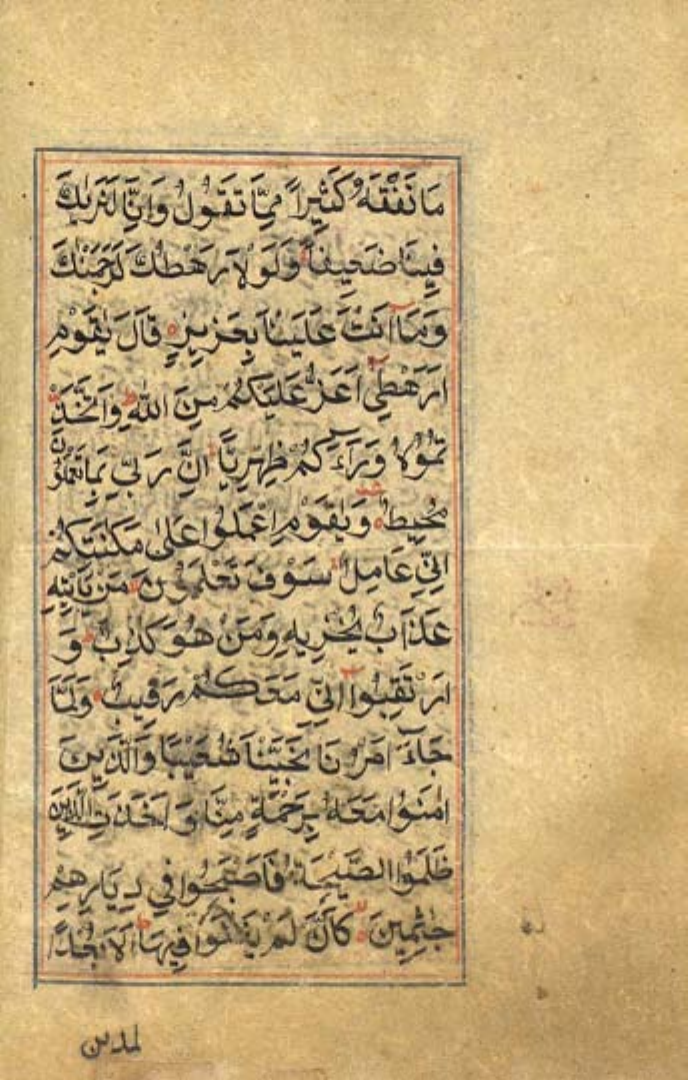 مَا نَفْقَهُ كَثِيرًا مِمَّا تَقُولُ وَاِنَّا لَنَرٰىكَ
فِينَا ضَعِيفًا وَلَوْلَا رَهْطُكَ لَرَجَمْنٰكَ
وَمَا اَنْتَ عَلَيْنَا بِعَزِيزٍ قَالَ يٰقَوْمِ
اَرَهْطِي اَعَزُّ عَلَيْكُمْ مِنَ اللّٰهِ وَاتَّخَذْ
تُمُوهُ وَرَآءَكُمْ ظِهْرِيًّا اِنَّ رَبِّي بِمَا تَعْمَلُونَ
مُحِيطٌ وَيٰقَوْمِ اعْمَلُوا عَلٰى مَكَانَتِكُمْ
اِنِّي عَامِلٌ سَوْفَ تَعْلَمُونَ مَنْ يَأْتِيهِ
عَذَابٌ يُخْزِيهِ وَمَنْ هُوَ كَاذِبٌ وَ
ارْتَقِبُوا اِنِّي مَعَكُمْ رَقِيبٌ وَلَمَّا
جَآءَ اَمْرُنَا نَجَّيْنَا شُعَيْبًا وَالَّذِينَ
اٰمَنُوا مَعَهُ بِرَحْمَةٍ مِنَّا وَاَخَذَتِ الَّذِينَ
ظَلَمُوا الصَّيْحَةُ فَاَصْبَحُوا فِي دِيَارِهِمْ
جٰثِمِينَ كَاَنْ لَمْ يَغْنَوْا فِيهَا اَلَا بُعْدًا
لمدين